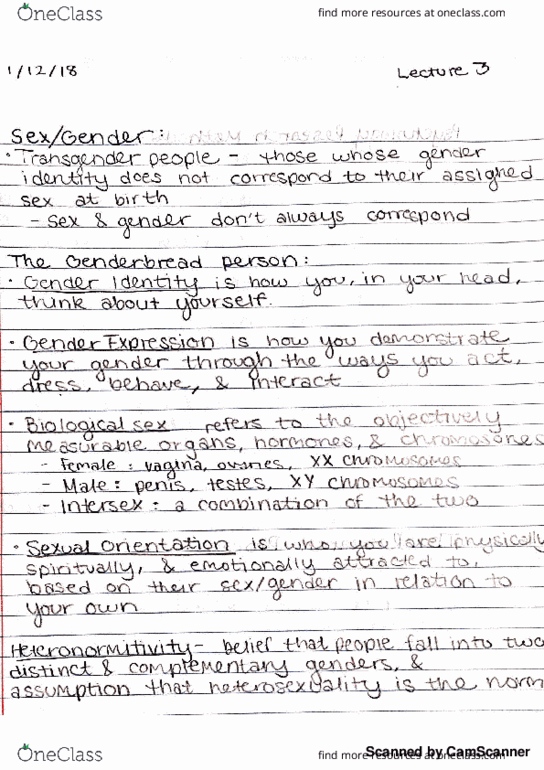 OneClass
find more resources at oneclass.com
1/12/18
Lecture 3
Sex/Gender:
• Transgender people - those whose gender
identity does not correspond to their assigned
sex at birth
- Sex & gender don't always correspond
The Genderbread person:
• Gender Identity is how you, in your head,
think about yourself.
• Gender Expression is how you demonstrate
your gender through the ways you act,
dress, behave, & interact
• Biological sex refers to the objectively
measurable organs, hormones, & chromosones
- Female: vagina, ovaries, XX chromosomes
- Male: penis, testes, XY chromosomes
- Intersex: a combination of the two
• Sexual Orientation is who you are physically
spiritually, & emotionally attracted to,
based on their sex/gender in relation to
your own
Heteronormitivity - belief that people fall into two
distinct & complementary genders, &
assumption that heterosexuality is the norm
OneClass
find more resources at oneclass.com
Scanned by CamScanner